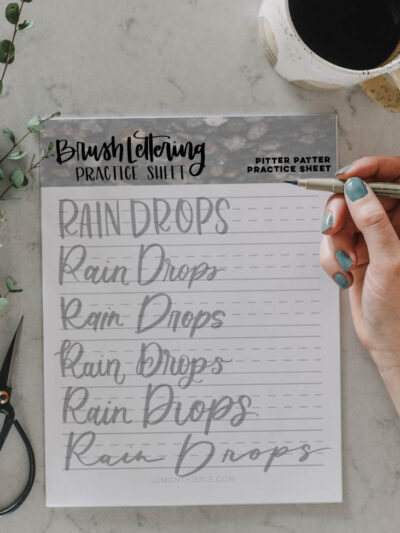 Brush Lettering
PRACTICE SHEET
PITTER PATTER
PRACTICE SHEET
RAIN DROPS
Rain Drops
Rain Drops
Rain Drops
Rain Drops
Rain Drops
LEMONTHISTLE.COM